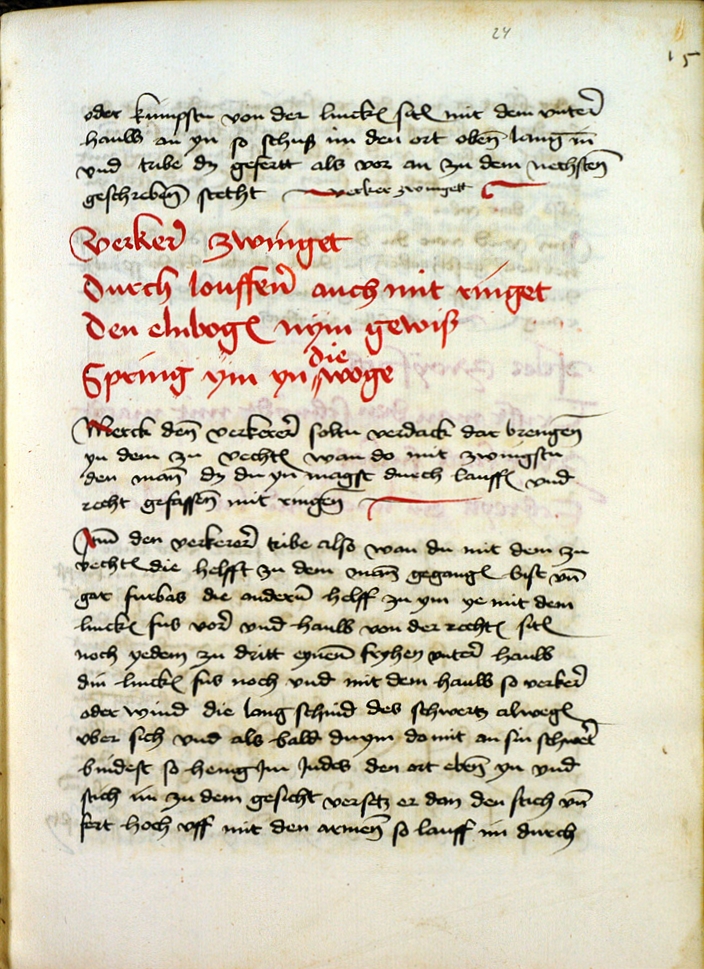 24
15
oder kumpstu von der linckē sitē mit dem vnterē
hauw an yn so schuß im den ort obeñ lang in
vnd tribe dz gefertt als vor an zu dem nechsteñ
geschribeñ stetht verker zwingett
Verkerē zwinget
durch louffeñ auch mit ringet
den elnbogē nÿm gewiß
Spring ÿm yn die woge
Merck deñ verkererē soltu verdack dar brengeñ
yn dem zu vechtē wan do mit zwingstu
den mañ dz du yn magst durch lauffē vnd
recht gefasseñ mit ringeñ
Itm̄ den verkererē tribe also wan du mit dem zu
vechtē die helfft zu dem mañ gegangē bist vñ
gar furbas die anderñ helff zu ym ye mit dem
linckē fus vorē vnd hauw von der rechtē sitē
noch yedem zu dritt eyneñ fryhen vnterē hauw
din linckē fus noch vnd mit dem hauw so verkerē
oder wind die lang schnid des schwertz alwegē
vber sich vnd als bald du ym do mit an sin schwert
bindest so heng Im Indes den ort obeñ yn vnd
stich im zu dem gesicht versetz er dan den stich vñ
fert hoch vff mit den armeñ so lauff im durch